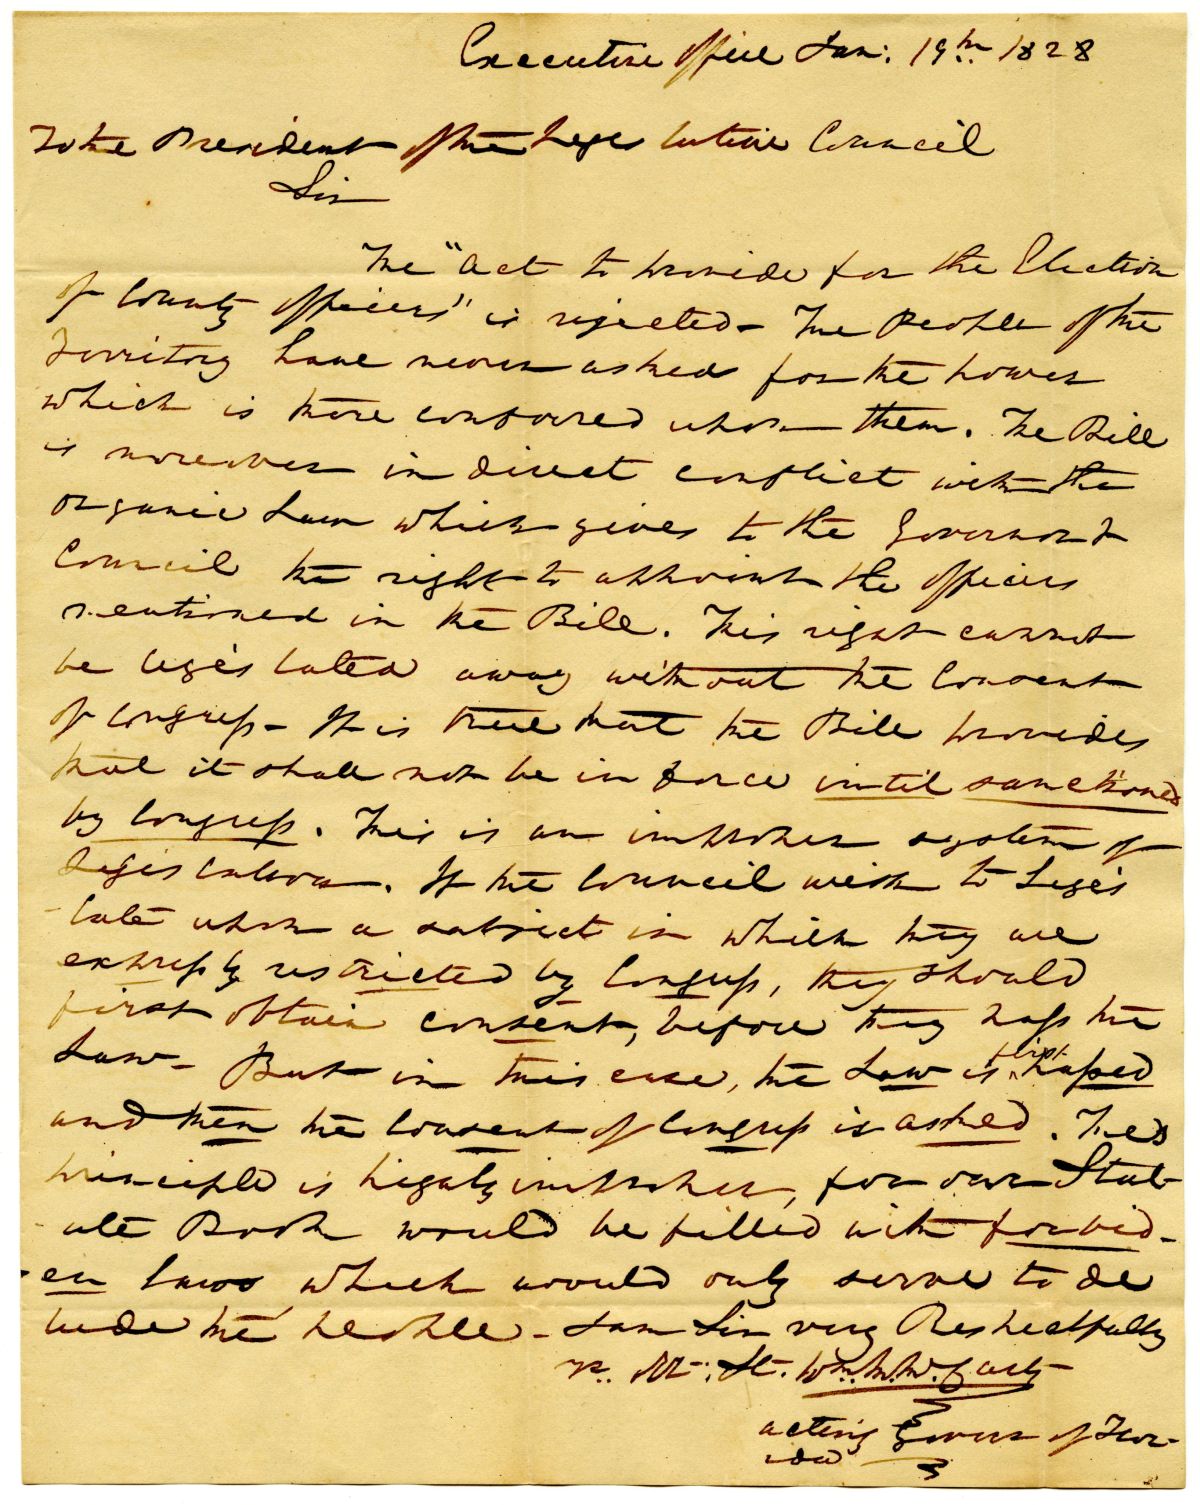 Executive office Jan: 19th 1828
To the President of the Legis lative Council
Sir
The "act to provide for the Election
of County officers" is rejected - The People of the
Territory have never asked for the power
which is there conferred upon them. The Bill
is moreover in direct conflict with the
organic Law which gives to the Governor &
Council the right to appoint the officers
mentioned in the Bill. This right cannot
be legis lated away without the Consent
of Congress - It is true that the Bill provides
that it shall not be in force until sanctioned
by Congress. This is an improper system of
Legis lation. If the Council wish to Legis
late upon a subject in which they are
expressly restricted by Congress, they should
first obtain consent, before they pass the
Law - But in this case, the Law is first passed
and then the Consent of Congress is asked. The
principle is highly improper, for our Stat-
ute Book would be filled with forbid-
-en laws which would only serve to de
lude the people - I am Sir very Respectfully
yr. Ob: St. Wm. M. McCarty
acting Govenr of Flor-
ida